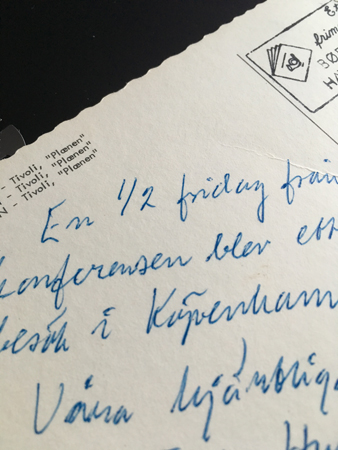 - Tivoli, "Plænen"
- Tivoli, "Plænen"
N - Tivoli, "Plænen"
En 1/2 friday från
konferensen blev ett
besök i Köpenhamn
Våra